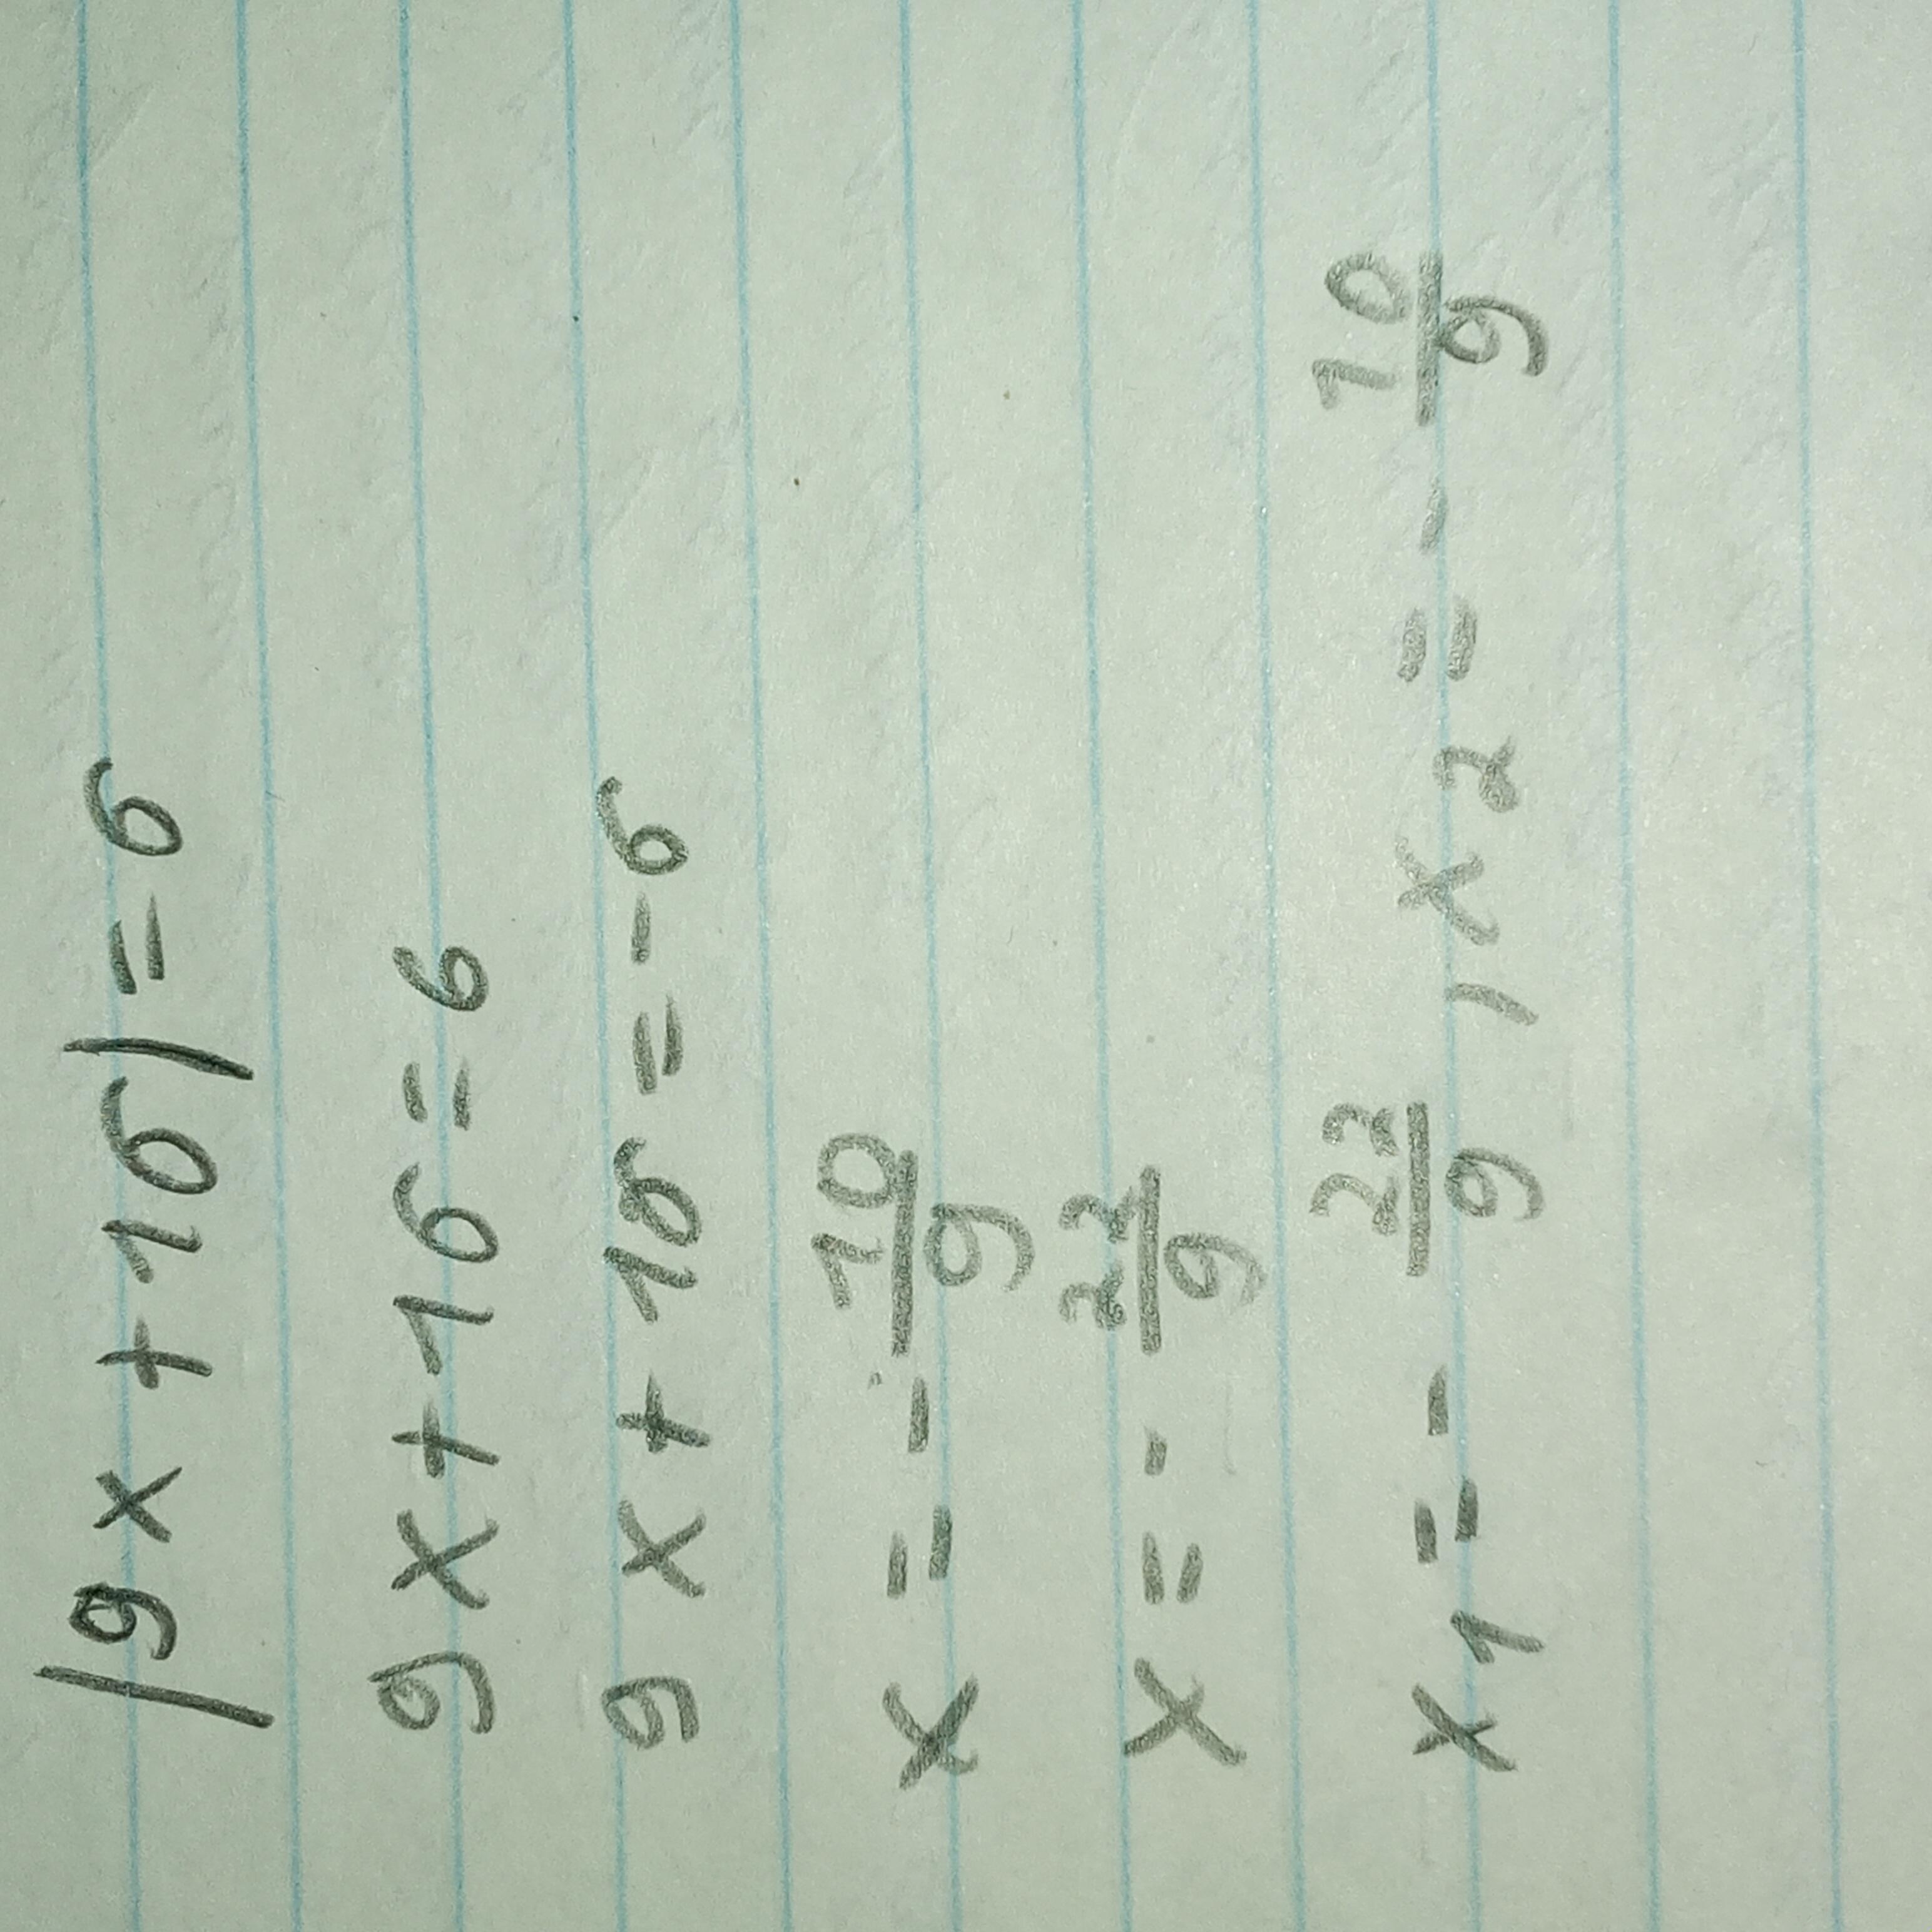 |9x+16|=6
9x+16=6
9x+16=-6
x=-10/9
x=-22/9
x1=-22/9, x2=-10/9